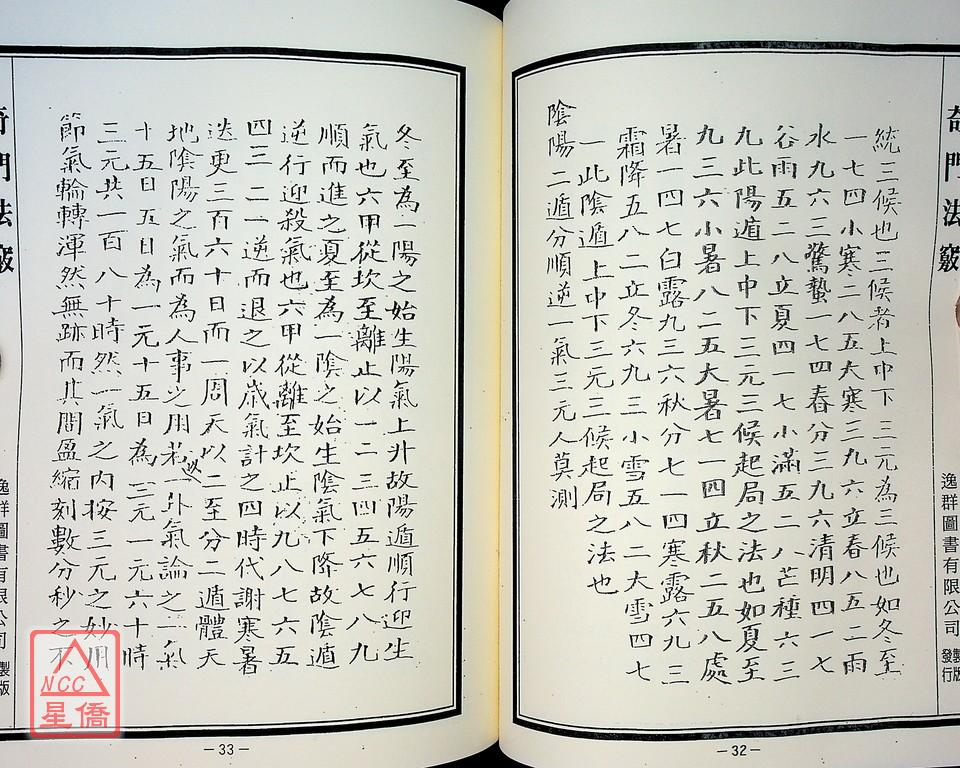 奇門法竅
統三候也三候者上中下三元為三候也如冬至
一七四小寒二八五大寒三九六立春八五二雨
水九六三驚蟄一七四春分三九六清明四一七
谷雨五二八立夏四一七小滿五二八芒種六三
九此陽遁上中下三元三候起局之法也如夏至
九三六小暑八二五大暑七一四立秋二五八處
暑一四七白露九三六秋分七一四寒露六九三
霜降五八二立冬六九三小雪五八二大雪四七
一此陰遁上中下三元三候起局之法也
陰陽二遁分順逆一氣三元人莫測
逸群圖書有限公司
製版
發行
-32-
冬至為一陽之始生陽氣上升故陽遁順行迎生
氣也六甲從坎至離止以一二三四五六七八九
順而進之夏至為一陰之始生陰氣下降故陰遁
逆行迎殺氣也六甲從離至坎止以九八七六五
四三二一逆而退之以歲氣計之四時代謝寒暑
迭更三百六十日而一周天以二至分二遁體天
地陰陽之氣而為人事之用若以一卦氣論之一氣
十五日五日為一元十五日為三元一元六十時
三元共一百八十時然一氣之內按三元之妙用
節氣輪轉渾然無跡而其間盈縮刻數分秒之不
奇門法竅
逸群圖書有限公司
製版
-33-
NCC
星僑